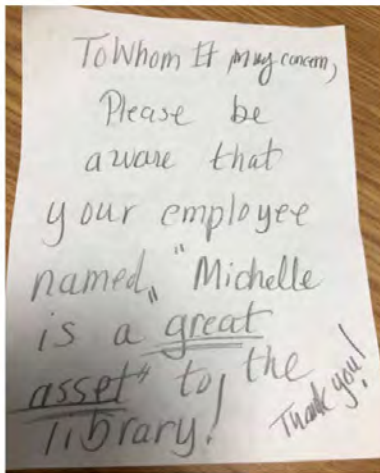 To Whom It may concern,
Please be
aware that
your employee
named,, "Michelle
is a great
asset" to, the
library!
Thank you!